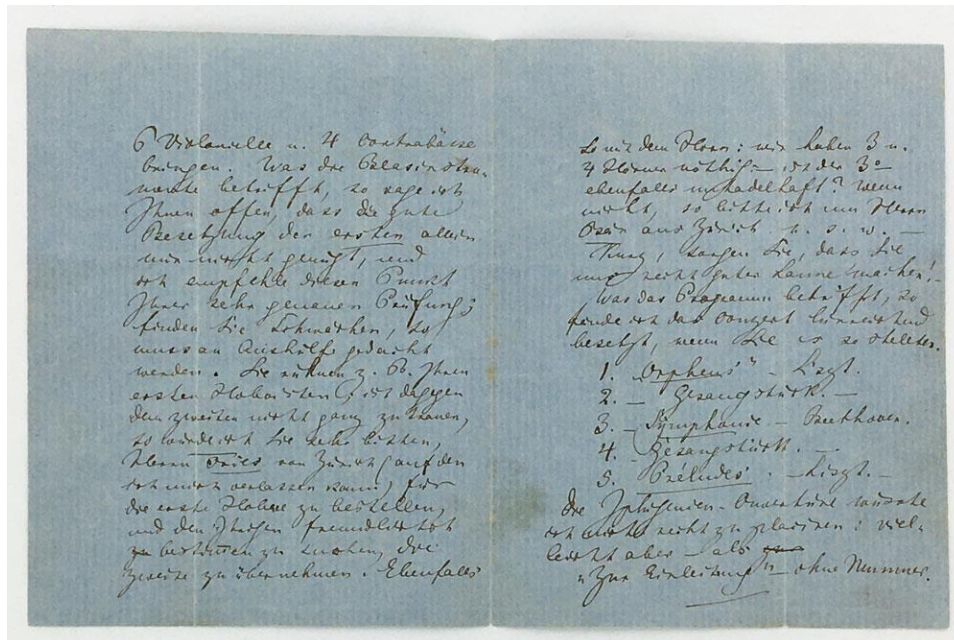 6 Violoncelle u. 4 Contrabässe
bringen. Was die Blasinstru-
mente betrifft, so sage ich
Ihnen offen, dass die gute
Besetzung der ersten allein
mir nicht genügt, und
ich empfehle diesen Punct
Ihrer sehr genauen Prüfung;
finden Sie Schwächen, so
muss an Aushülfe gedacht
werden. Sie rühmen z. B. Ihren
ersten Hoboisten; ist dagegen
dem zweiten nicht ganz zu trauen,
so würde ich Sie sehr bitten,
Herrn Fries von Zürich (auf den
ich mich verlassen kann) für
die erste Hoboe zu bestellen,
und den Ihrigen freundlichst
zu bestimmen zu suchen, die
zweite zu übernehmen. Ebenfalls
so mit dem Horn: wir haben 3 u.
4 Hörner nöthig – ist der 3e
ebenfalls untadelhaft? Wenn
nicht, so bitte ich um Herrn
aus Zürich u. s. w. –
Kurz, sorgen Sie, dass Sie
mir recht gute Laune machen! –
Was das Programm betrifft, so
finde ich das Conzert hinreichend
besetzt, wenn Sie es so stellten.
1. „Orpheus" – Liszt.
2. – Gesangstück. –
3. – Symphonie – Beethoven.
4. Gesangstück. –
5. Préludes – Liszt. –
Die Iphigenien-Ouvertüre wüsste
ich nicht recht zu placiren: viel-
leicht aber – als
„Zur Einleitung" – ohne Nummer.